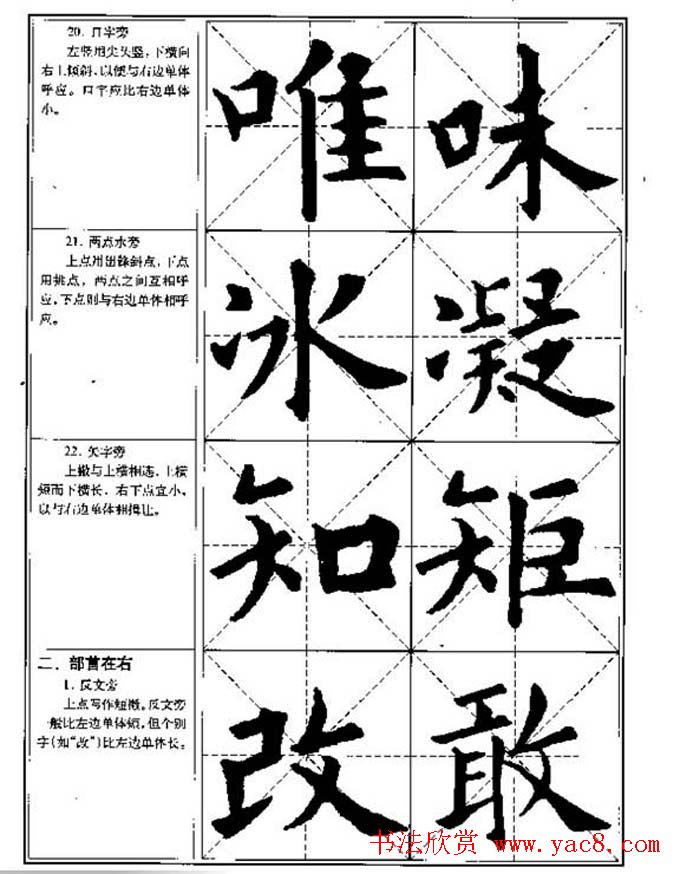 20. 口字旁
左竖用尖头竖，下横向
右上倾斜，以便与右边单体
呼应。口字应比右边单体
小。
唯 味
21. 两点水旁
上点用出锋斜点，下点
用挑点，两点之间互相呼
应，下点则与右边单体相呼
应。
冰 凝
22. 矢字旁
上撇与上横相连，上横
短而下横长，右下点宜小，
以与右边单体相揖让。
知 矩
二、部首在右
1. 反文旁
上点写作短撇。反文旁
一般比左边单体短，但个别
字（如“改”）比左边单体长。
改 敢
书法欣赏 www.yac8.com